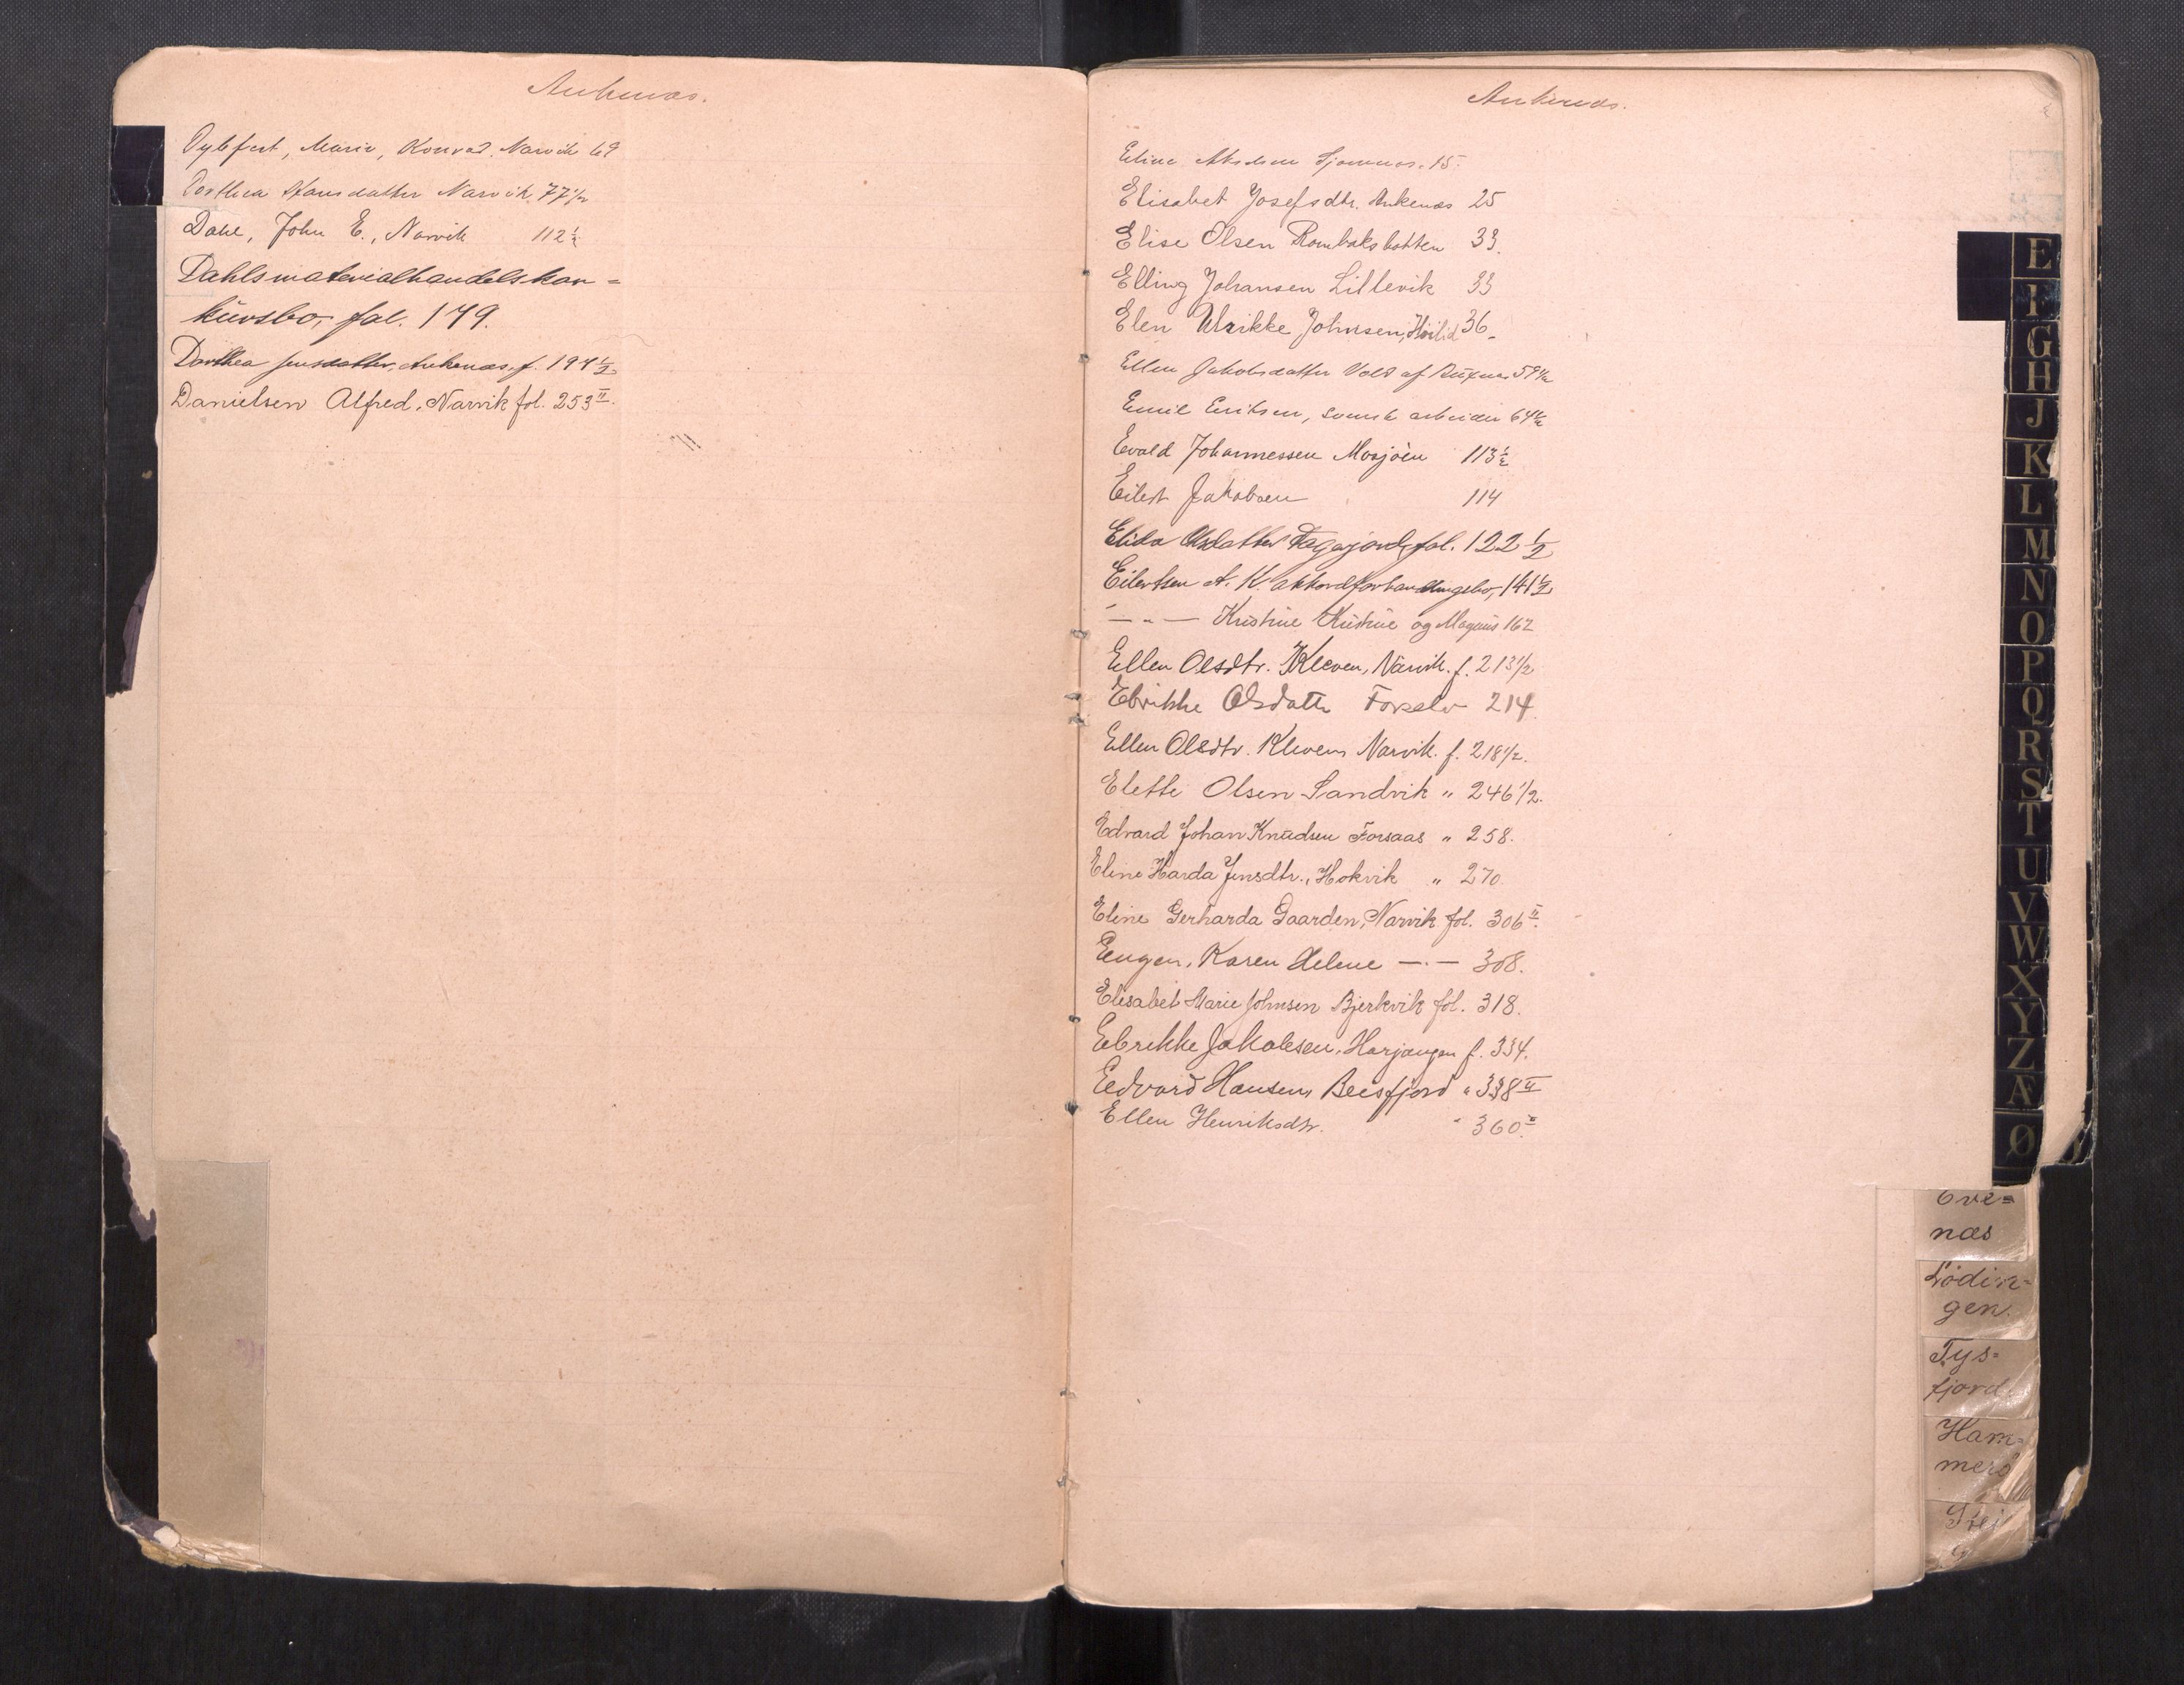 Ankenæs.
Dybfest, Marie, Konrad. Narvik 69
Dorthea Hansdatter Narvik 77½
Dahl, John E., Narvik 112½
Dahls materialhandels kon=
kursbo, fol. 179.
Dorthea Jensdatter, Ankenæs, f. 194½
Danielsen Alfred, Narvik fol. 253 II.
Ankenæs.
Eline Sjomnæs. 15.
Elisabet Josefsdtr. Ankenæs 25
Elise Olsen Rombaksbotten 33.
Elling Johansen Lillevik 33
Elen Ulrikke Johnsen, 36.
Ellen Jakobsdatter Vold af 59½
Emil Eriksen, svensk arbeider 64½
Evald Johannessen Mosjöen 113½
Eilert Jakobsen 114
Elida Olsdatter Fagerjord, fol. 122½
Eilertsen A. K. akkordforhandlingsbo, 141½
— " — Kristine og Magnus 162
Ellen Olsdtr. Kleven, Narvik. f. 213½
Ebrikke Olsdattr Forselv 214.
Ellen Olsdtr. Klevens Narvik. f. 218½.
Elette Olsen Sandvik " 246½.
Edvard Johan Knudsen Forsaas " 258.
Eline Harda Jensdtr., Hokvik " 270.
Eline Gerharda Gaarden, Narvik fol. 306 II.
Eugen, Karen Helene —.— 308.
Elisabet Marie Johnsen Bjerkvik fol. 318.
Ebrikke Jakobsen. Herjangen f. 334.
Edvard Hansen, Beisfjord " 338 II
Ellen Henriksdtr. " 360. II
E
F
G
H
J
K
L
M
N
O
P
Q
R
S
T
U
V
W
X
Y
Z
Æ
Ø
Eve=
næs
Lödin=
gen.
Tys=
fjord
Ham=
merö